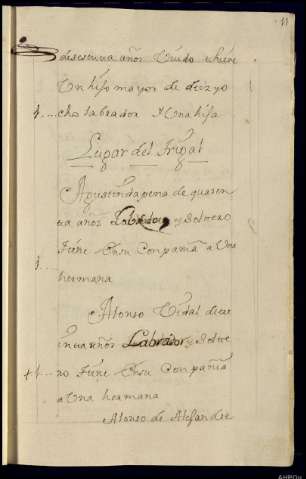 11
de sesenta años Viudo tiene
Un hijo mayor de diez yo
cho labrador Y Una hija
Lugar del Trigal
Agustin da pena de quaren
ta años Labrador y Soltero
tiene En su Conpania a Una
hermana
Alonso Vidal de
enta años Labrador y Solte
ro tiene En su Conpania
a Una hermana
Alonso de
AHPOU